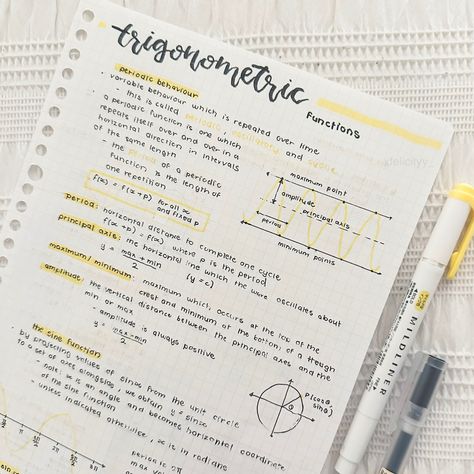 trigonometric
Functions
periodic behaviour
· variable behaviour which is repeated over time
- this is called periodic, oscillatory and cyclic
· a periodic function is one which
repeats itself over and over in a
horizontal direction in intervals
of the same length
- the period of a periodic
function, is the length of
one repetition
f(x) = f(x+p) for all x
and fixed p
maximum point
amplitude
principal axis
period
minimum points
period: horizontal distance to complete one cycle
f(x+p) = f(x) where p is the period
principal axis: the horizontal line which the wave oscillates about
y = max + min / 2 [y = c]
maximum/minimum: maximum which occurs at the top of the
crest and minimum at the bottom of a trough
amplitude: the vertical distance between the principal axes and the
min or max
- amplitude is always positive
y = max - min / 2
the sine function
· by projecting values of sinox from the unit circle
to a set of axes alongside, we obtain y = sinx
note: x is an angle and becomes horizontal coordinate
of the sine function
· unless indicated otherwise, x is in radians
P(cosθ,
sinθ)
θ
period is 2π
MILDLINER